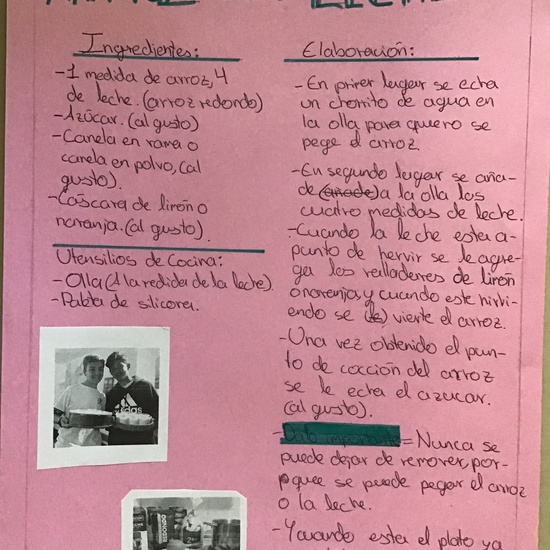 ARROZ CON LECHE
Ingredientes:
-1 medida de arroz, 4
de leche. (arroz redondo)
-Azúcar. (al gusto)
-Canela en rama o
canela en polvo, (al
gusto).
-Cáscara de limón o
naranja. (al gusto).
Utensilios de Cocina:
-Olla (A la medida de la leche)
-Paleta de silicona.
Elaboración:
-En primer lugar se echa
un chorrito de agua en
la olla para que no se
pege el arroz.
-En segundo lugar se aña-
de (añade) a la olla las
cuatro medidas de leche.
-Cuando la leche esta a-
punto de hervir se le agre-
ga los ralladores de limón
o naranja, y cuando este hirvi-
endo se (le) vierte el arroz.
-Una vez obtenido el pun-
to de cocción del arroz
se le echa el azucar.
(al gusto).
-Dato importante = Nunca se
puede dejar de remover, por-
que se puede pegar el arroz
o la leche.
-Y cuando este el plato ya
adidas